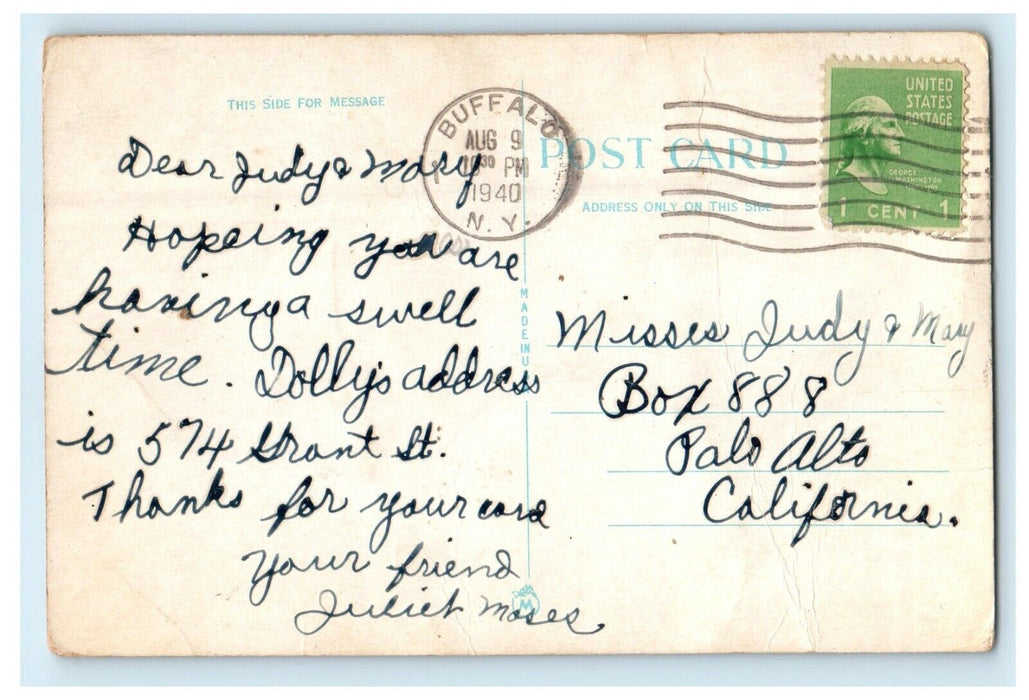 THIS SIDE FOR MESSAGE
BUFFALO
AUG 9
10 30 PM
1940
N.Y.
POST CARD
ADDRESS ONLY ON THIS SIDE
UNITED
STATES
POSTAGE
GEORGE
WASHINGTON
1 CENT 1
Dear Judy & Mary
Hopeing you are
having a swell
time. Dolly's address
is 574 Grant St.
Thanks for your card
Your friend
Juliet Moses
MADE IN U
M
Misses Judy & Mary
Box 888
Palo Alto
California.